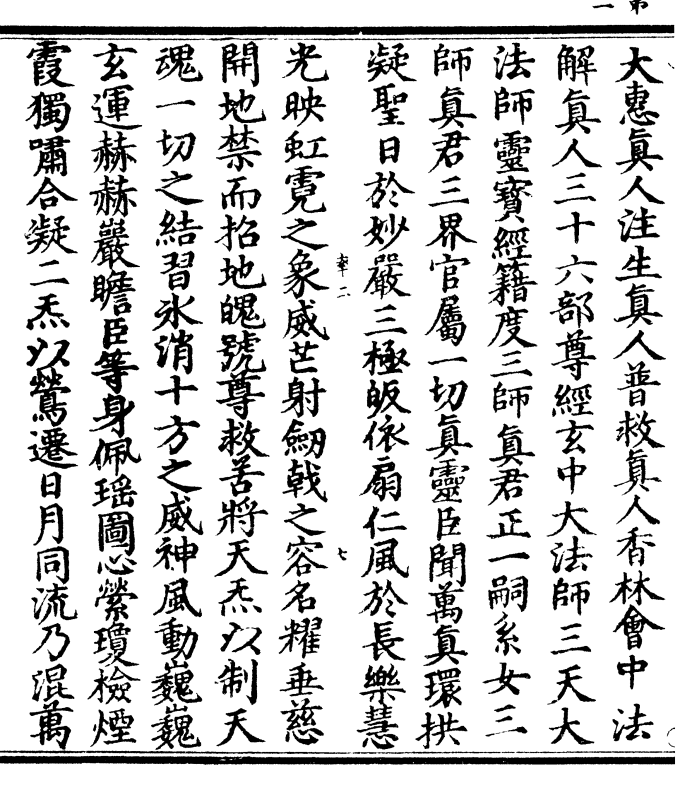 大惠眞人注生眞人普救眞人香林會中法
解眞人三十六部尊經玄中大法師三天大
法師靈寳經籍度三師眞君正一嗣系女三
師眞君三界官屬一切眞靈臣聞萬眞環拱
凝聖日於妙嚴三極皈依扇仁風於長樂慧
光映虹霓之象威芒射劒戟之容名耀垂慈
開地禁而招地魄號尊救苦將天炁以制天
魂一切之結習氷消十方之威神風動巍巍
玄運赫赫巖瞻臣等身佩瑶圖心縈瓊檢煙
霞獨嘯合凝二炁以鶯遷日月同流乃混萬
二
七